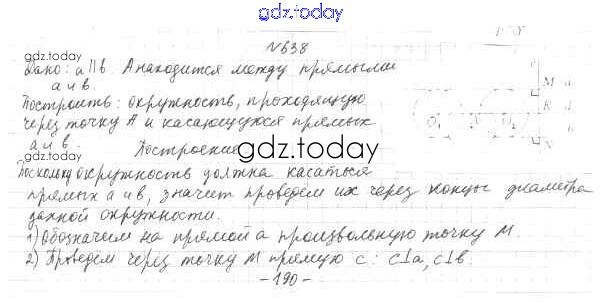 gdz.today
№638
gdz.today
Дано: а||в. А находится между прямыми
а и в.
Построить: окружность, проходящую
через точку А и касающуюся прямых
а и в.
gdz.today
Построение
gdz.today
gdz.today
Поскольку окружность должна касаться
прямых а и в, значит проведём их через концы диаметра
данной окружности.
1) Обозначим на прямой а произвольную точку М.
2) Проведём через точку М прямую с: с⊥а, с⊥в.
gdz.today
- 190 -
c
M a
K d
N b
O₁
O₂